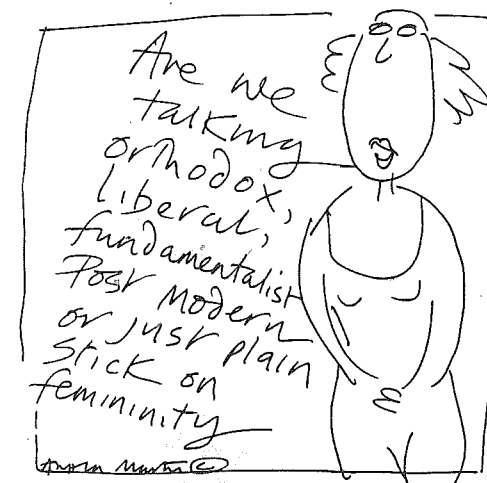 Are we
talking
orthodox,
liberal,
fundamentalist
Post Modern
or just plain
stick on
femininity
©